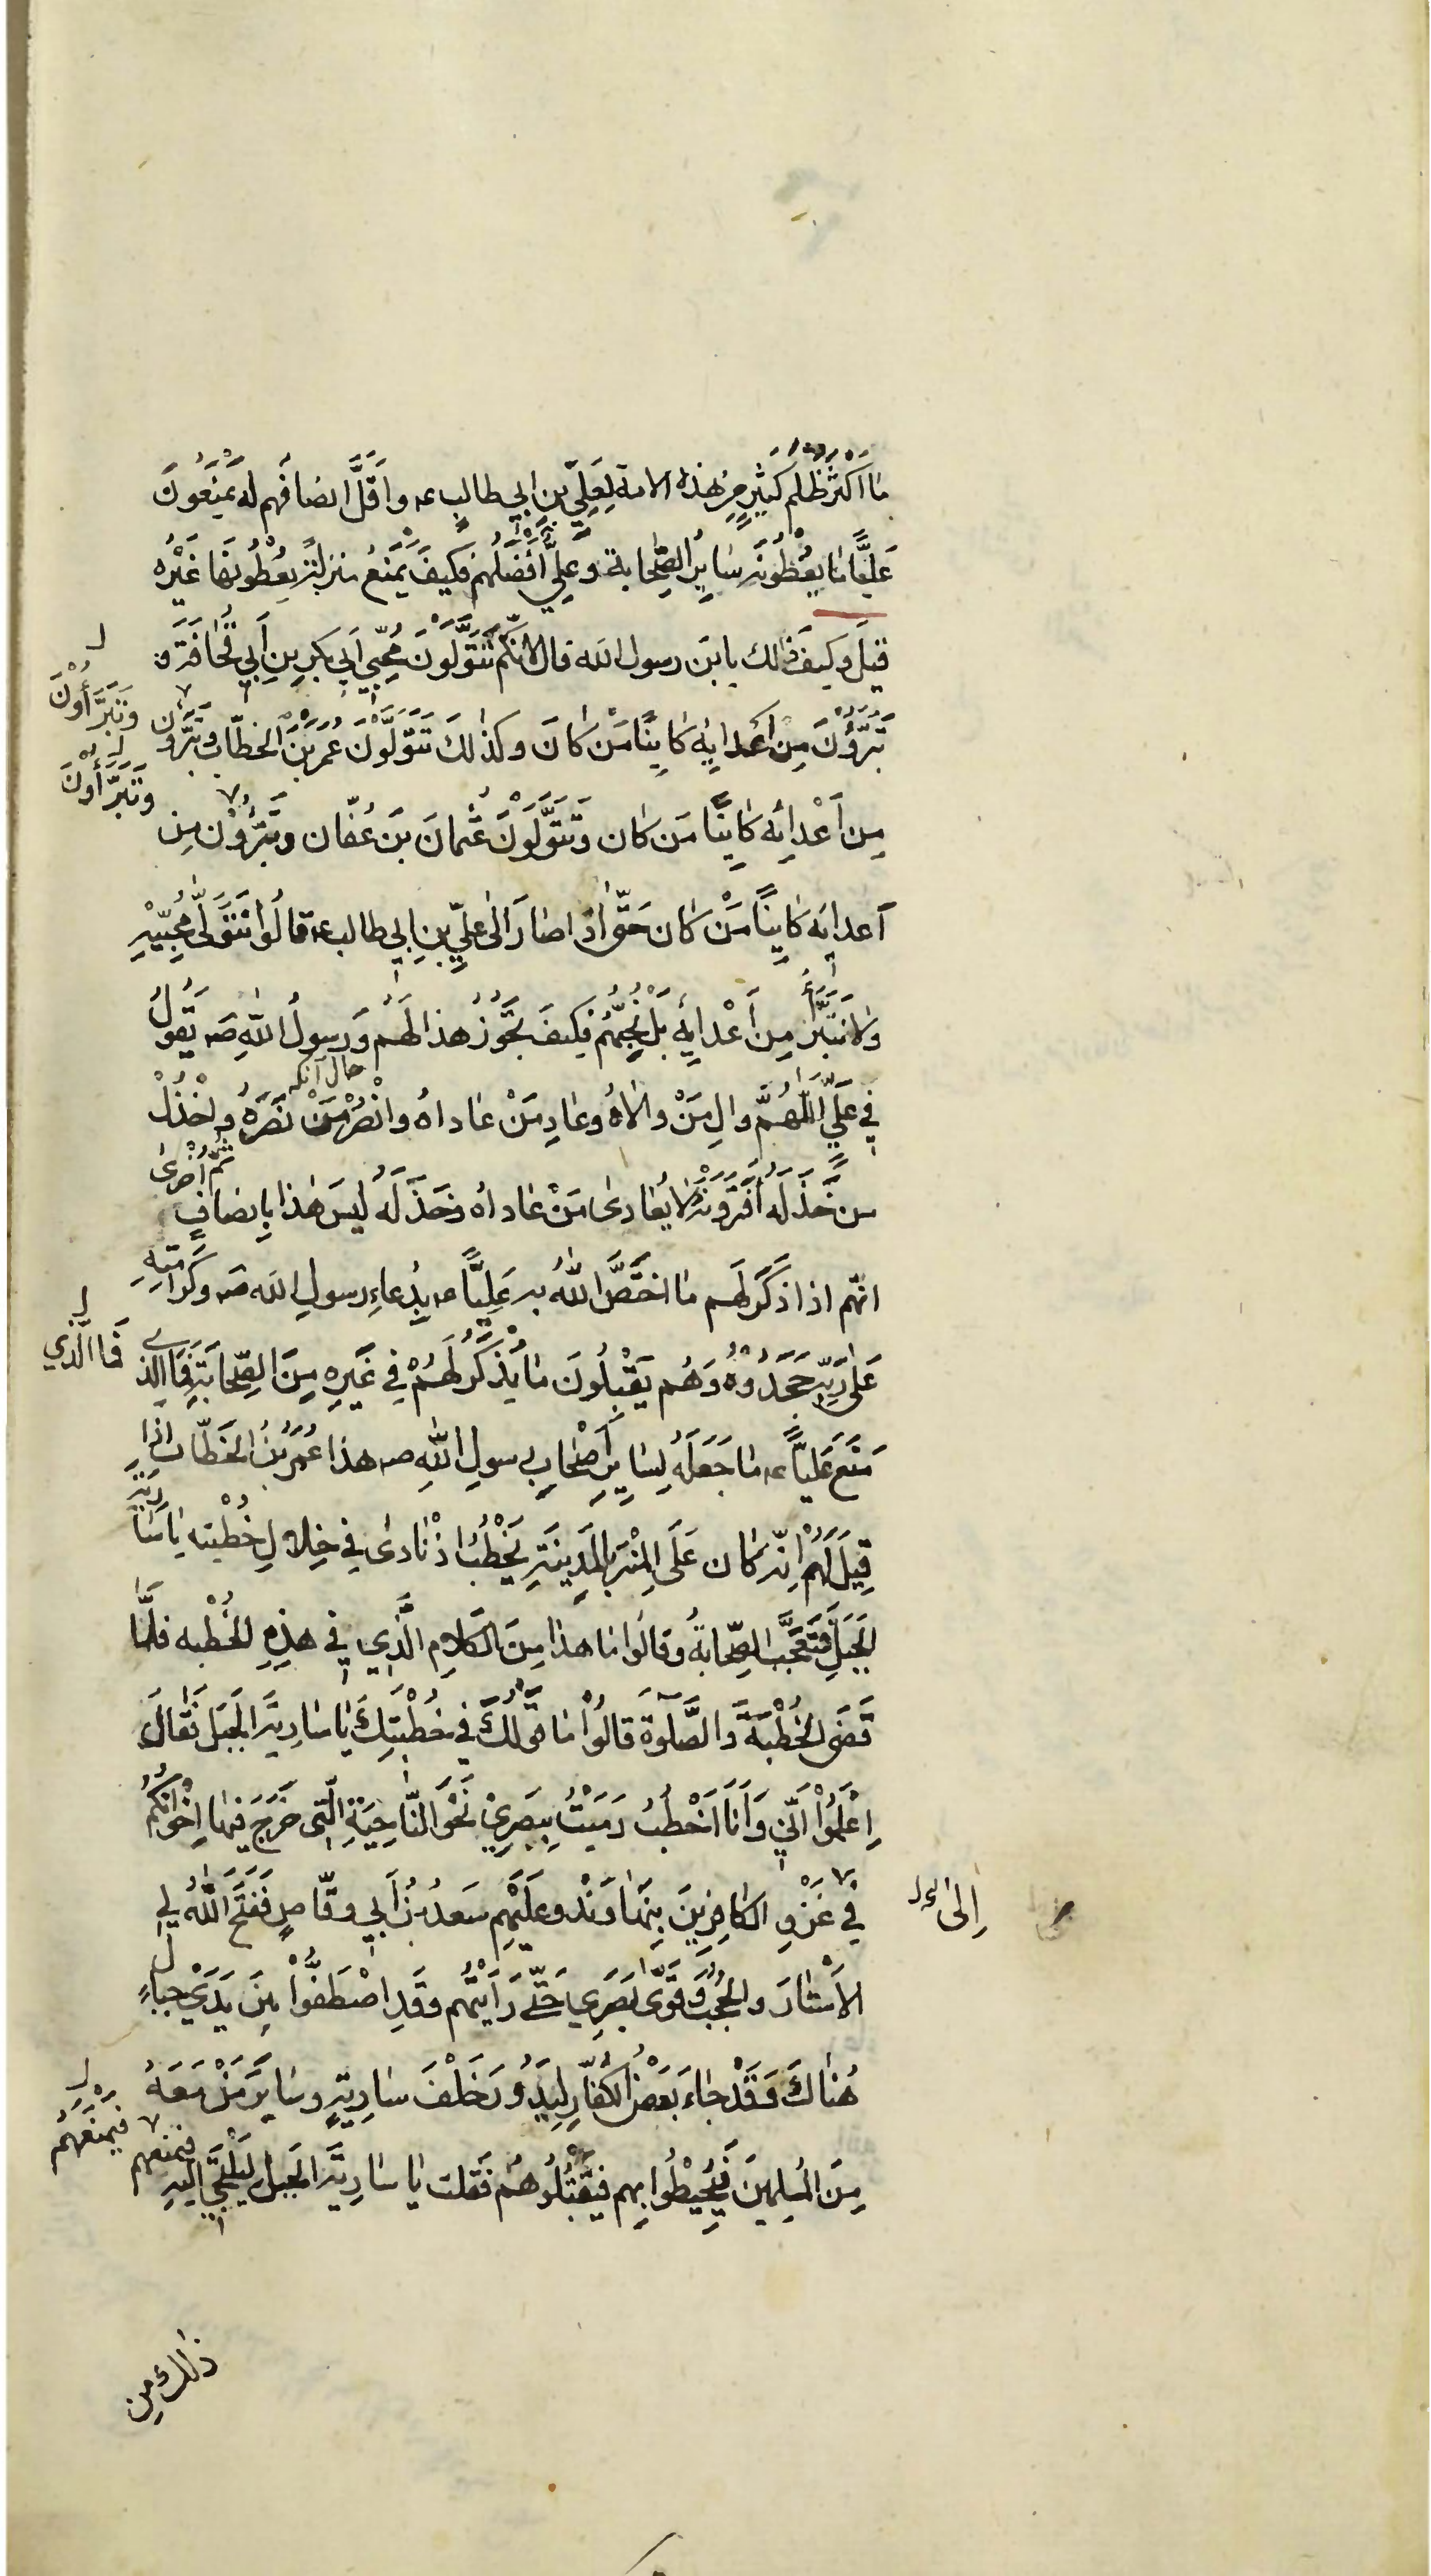 مَا اَكثَرَ ظُلمَ كَثِيرٍ مِنْ هٰذِهِ الامة لِعَلِيِّ بنِ ابي طالبٍ ع‍ واَقَلَّ انصَافَهم له يَمْنَعُونَ
عَلِيًّا مَا يُعْطُونَهُ سَايِرَ الصِّحَابة وَعَلِيٌّ أَفْضَلُهُمْ فكَيفَ يُمْنَعُ منزلةً يُعْطُونَهَا غَيْرَهُ
قيلَ وكيفَ ذٰلك يابنَ رسول الله قال لانَّكُم تَتَوَلَّوْنَ مُحِبِّي اَبي بكرِ بنِ اَبي قُحَافَةَ وَ
تَبَرَّؤُنَ مِنْ اَعْدائِه كَايِنًا مَنْ كَانَ وكذٰلكَ تَتَوَلَّوْنَ عُمَرَ بْنَ الخطّاب وتَبَرَّؤُن
وَتَتَبَرَّأُونَ
مِن اَعْدائِه كَايِنًا مَن كَان وَتَتَوَلَّوْنَ عُثمانَ بنَ عُفّان وتَبَرَّؤُنْ مِن
وَتَتَبَرَّأُونَ
اَعدائِه كَايِنًا مَنْ كَان حَتّى اِذَا صَارَ اِلى عليِّ بنِ ابي طالب ع‍ قالُوا نَتَوَلّى مُحِبِّيْهِ
ولَا نَتَبَرَّأُ مِن اَعْدائِهِ بَلْ نُحِبُّهُمْ فكيفَ يَجُوزُ هذا لَهُمْ وَرسولُ اللهِ ص‍ يَقُولُ
حال آنكه
فِي عَلِيٍّ اللّٰهُمَّ والِ مَنْ والَاهُ وعَادِ مَنْ عَاداهُ وانْصُرْ مَنْ نَصَرَهُ واخْذُلْ
مَن خَذَلَهُ اَفَتَرَوْنَهُ لَا يُعَادى مَنْ عَاداهُ وخَذَلَهُ لَيسَ هٰذا بِانصَافٍ
ثُمَّ اُخرىٰ
انّهم اذا ذُكَرَ لَهم مَا اختَصَّ اللهُ به عَلِيًّا ع‍ بِدُعَاءِ رسولِ الله ص‍ وكَرَامَتِهِ
عَلى رَبِّهِ جَحَدُوْهُ وَهُم يَقْبَلُونَ مَا يُذْكَرُ لَهُمْ فِي غَيرِهِ مِنَ الصِّحَابَةِ فَمَا الَّذي
فَما الَّذي
مَنَعَ عَلِيًّا ع‍ مَا جَعَلَهُ لِسَايِرِ اَصْحَابِ رسولِ اللهِ ص‍ هذا عُمَرُ بْنُ الخَطّاب اِذَا
قِيلَ لَهُمْ اِنّهُ كَان عَلَى المِنْبَرِ بِالمَدِينَةِ يَخْطُبُ اِذْ نَادىٰ فِي خِلالِ خُطْبتِه يَا سَارِيَةُ
الجَبَلَ فَتَعَجَّبَ الصِّحابَةُ وقالُوا مَا هذا مِنَ الكَلامِ الَّذِي فِي هٰذِهِ الخُطْبه فلَمَّا
قَضَى الخُطْبَةَ وَالصَّلٰوةَ قَالُوا مَا قَوْلُكَ فِي خُطْبَتِكَ يَا سَارِيَةُ الجَبَلَ فَقَالَ
اِعْلَمُوْا اَنِّي وَاَنَا اَخْطُبُ رَمَيْتُ بِبَصَرِيْ نَحْوَ النَّاحِيَةِ الَّتِي خَرَجَ فِيهَا اِخْوانُكُمْ
فِي غَزْوِ الكافِرِيْنَ بِنَهَاوَنْد وعَلَيْهِم سَعدُ بْنُ اَبي وقّاصٍ فَفَتَحَ اللهُ لي
اِلىٰ
الاَسْتَارَ والحُجُبَ وَقَوّى بَصَرِي حَتّى رَاَيْتُهُم وقَدِ اصْطَفُّوا بَيْنَ يَدَيْ جبلٍ
هُنَاكَ وَقَدْ جَاءَ بَعْضُ الكُفّارِ لِيَدُوْرَ خَلْفَ سَارِيَةٍ وسَايِرِ مَنْ مَعَهُ
مِنَ المُسلِمينَ فَيُحِيْطُوا بِهم فيَقْتُلُوهُمْ فَقُلت يَا سَارِيَةُ الجَبل لِيَلْتَجِيَ اليهِ فيَمنَعهم
فَيَمْنَعَهُمْ
ذٰلك مِن